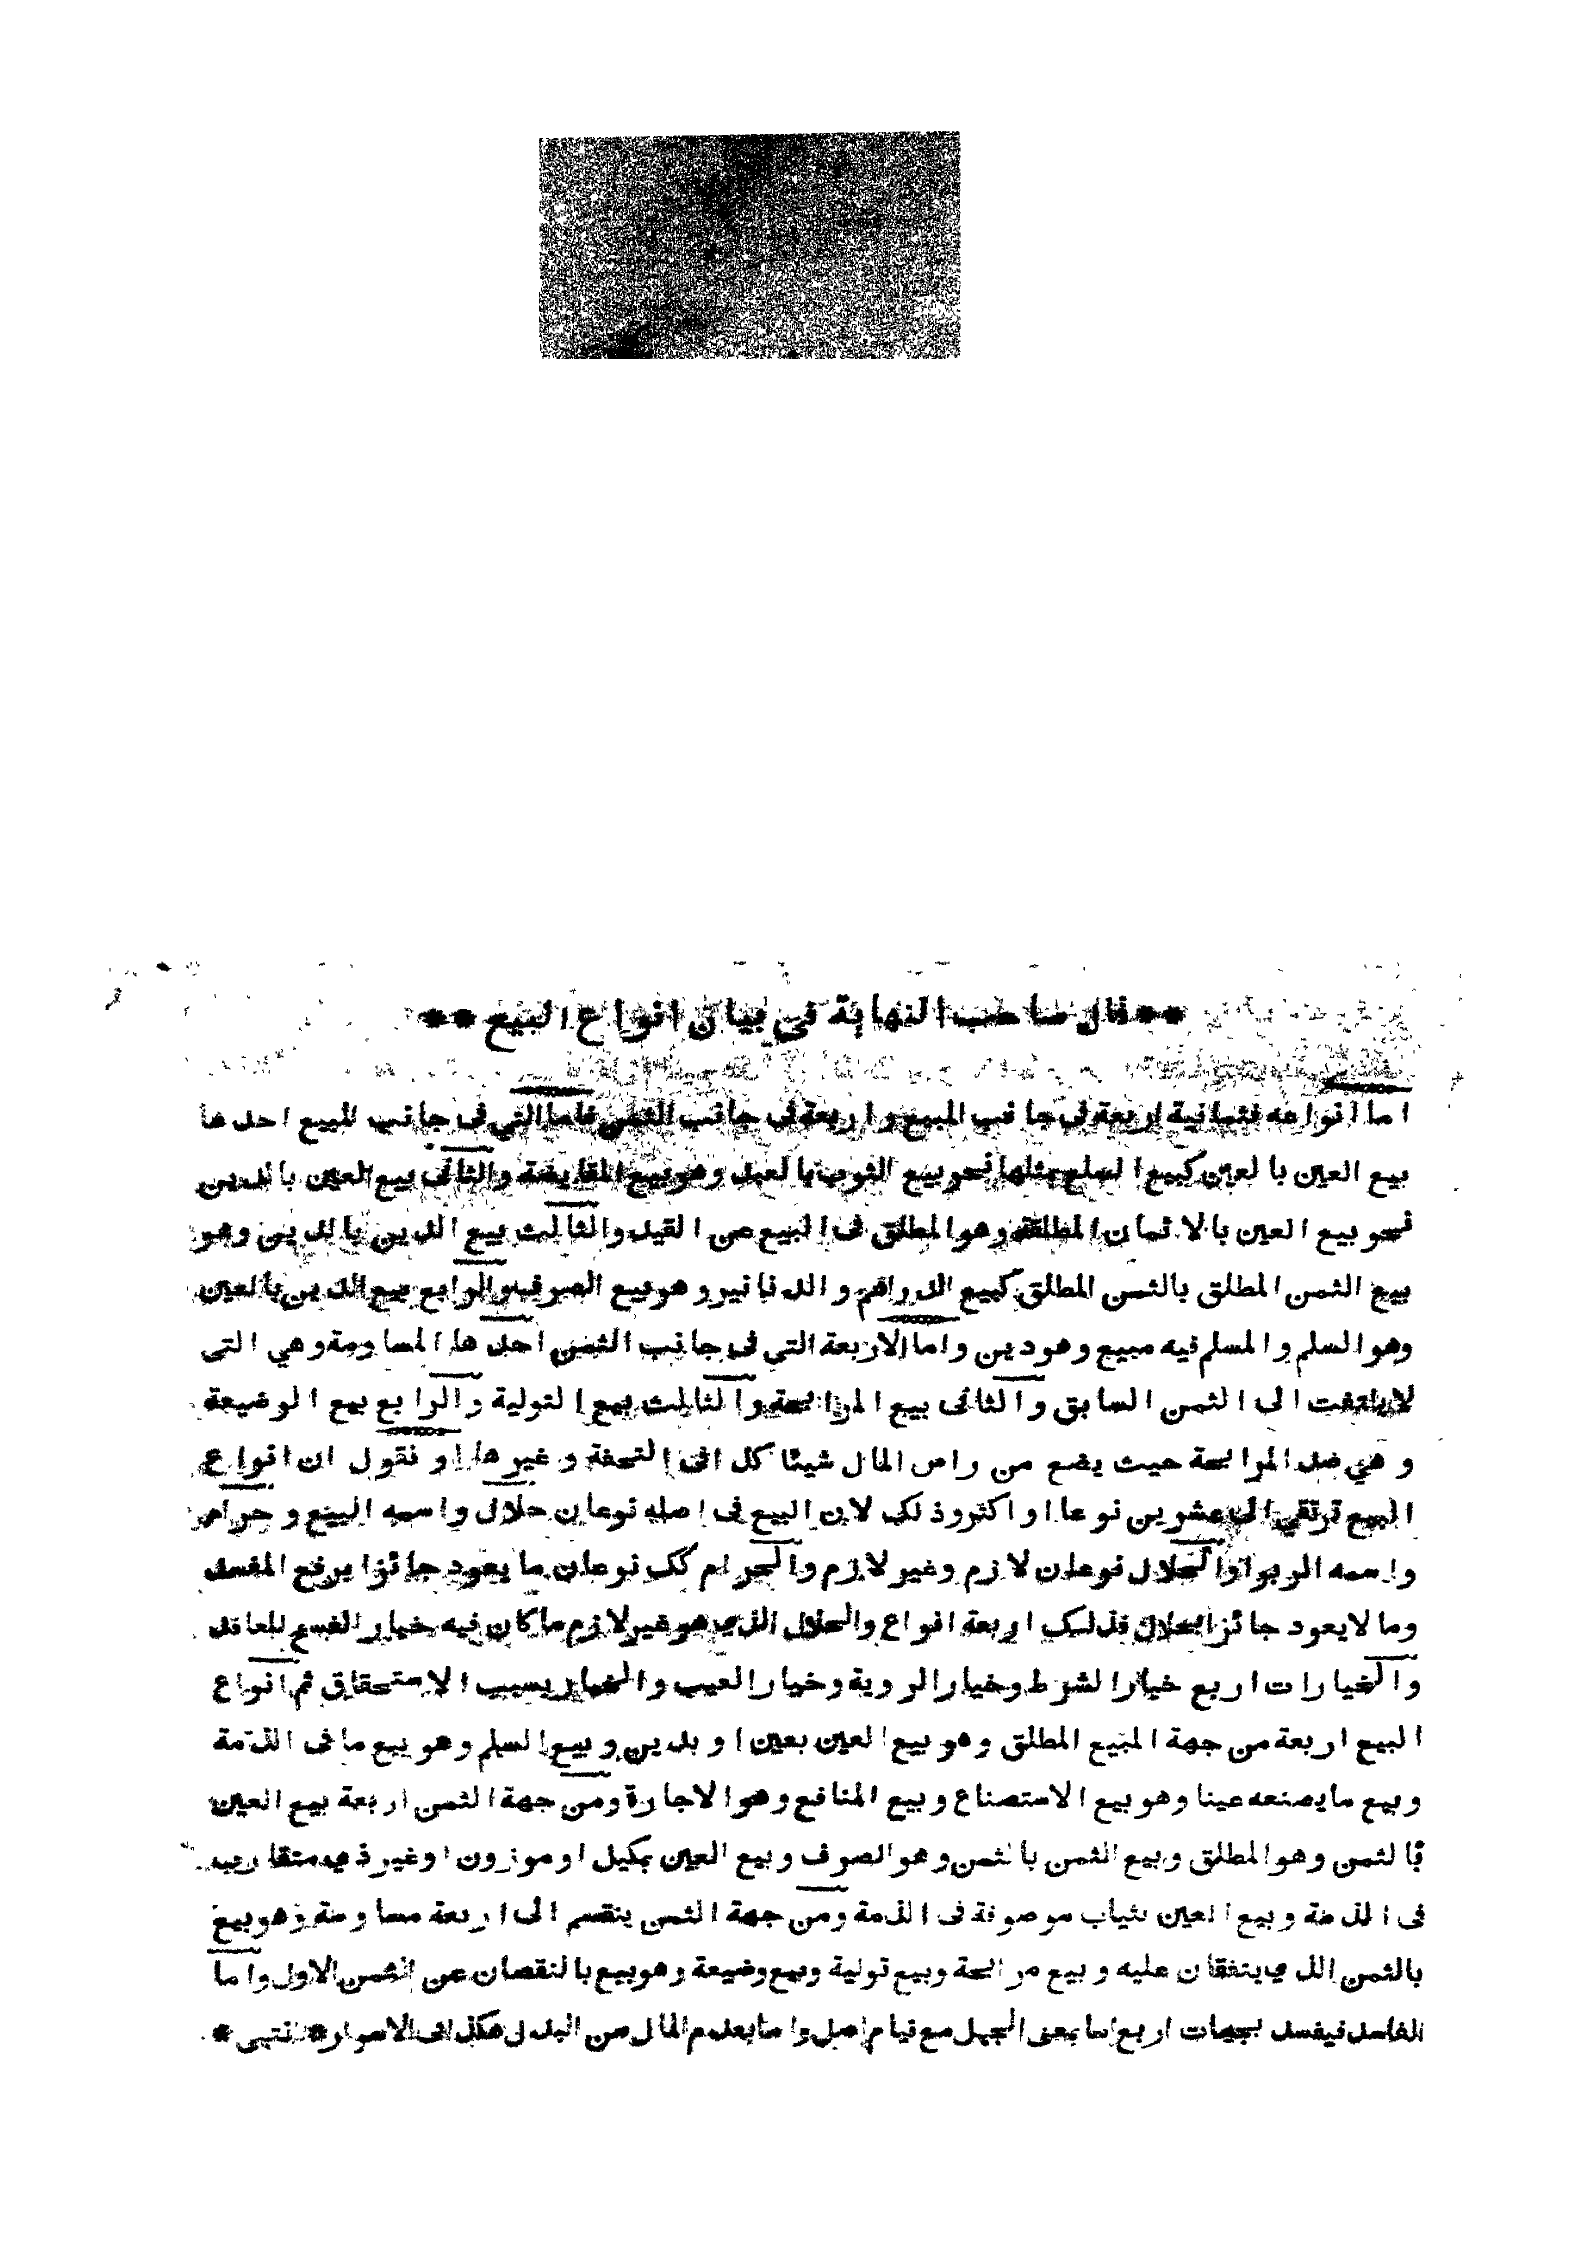 **قال صاحب النهاية في بيان انواع البيع**
اما انواعه فثمانية اربعة في جانب المبيع واربعة في جانب الثمن فاما التي في جانب المبيع احدها
بيع العين بالعين كبيع السلع بمثلها نحو بيع الثوب بالعبد وهو بيع المقايضة والثاني بيع العين بالدين
نحو بيع العين بالاثمان المطلقة وهو المطلق في البيع عن القيد والثالث بيع الدين بالدين وهو
بيع الثمن المطلق بالثمن المطلق كبيع الدراهم والدنانير وهو بيع الصرف والرابع بيع الدين بالعين
وهو السلم والمسلم فيه مبيع وهو دين واما الاربعة التي في جانب الثمن احدها المساومة وهي التي
لا يلتفت الى الثمن السابق والثاني بيع المرابحة والثالث بيع التولية والرابع بيع الوضيعة
وهي ضد المرابحة حيث يضع من راس المال شيئا كذا في التحفة وغيرها او نقول ان انواع
البيع ترتقي الى عشرين نوعا او اكثر وذلك لان البيع في اصله نوعان حلال واسمه البيع وحرام
واسمه الربوا والحلال نوعان لازم وغير لازم والحرام كك نوعان ما يعود جائزا برفع المفسد
وما لا يعود جائزا فذلك اربعة انواع والحلال الذي هو غير لازم ما كان فيه خيار الفسخ للعاقد
والخيارات اربع خيار الشرط وخيار الروية وخيار العيب والخيار بسبب الاستحقاق ثم انواع
البيع اربعة من جهة المبيع المطلق وهو بيع العين بعين او بدين وبيع السلم وهو بيع ما في الذمة
وبيع ما يصنعه عينا وهو بيع الاستصناع وبيع المنافع وهو الاجارة ومن جهة الثمن اربعة بيع العين
بالثمن وهو المطلق وبيع الثمن بالثمن وهو الصرف وبيع العين بمكيل او موزون او غير ذي متقارب
في الذمة وبيع العين بثياب موصوفة في الذمة ومن جهة الثمن ينقسم الى اربعة مساومة وهو بيع
بالثمن الذي يتفقان عليه وبيع مرابحة وبيع تولية وبيع وضيعة وهو بيع بالنقصان عن الثمن الاول واما
الفاسد فيفسد بجهات اربع اما بمعنى الجهل مع قيام اصل واما بعدم المال من البدل هكذا في الاسرار * انتهى *